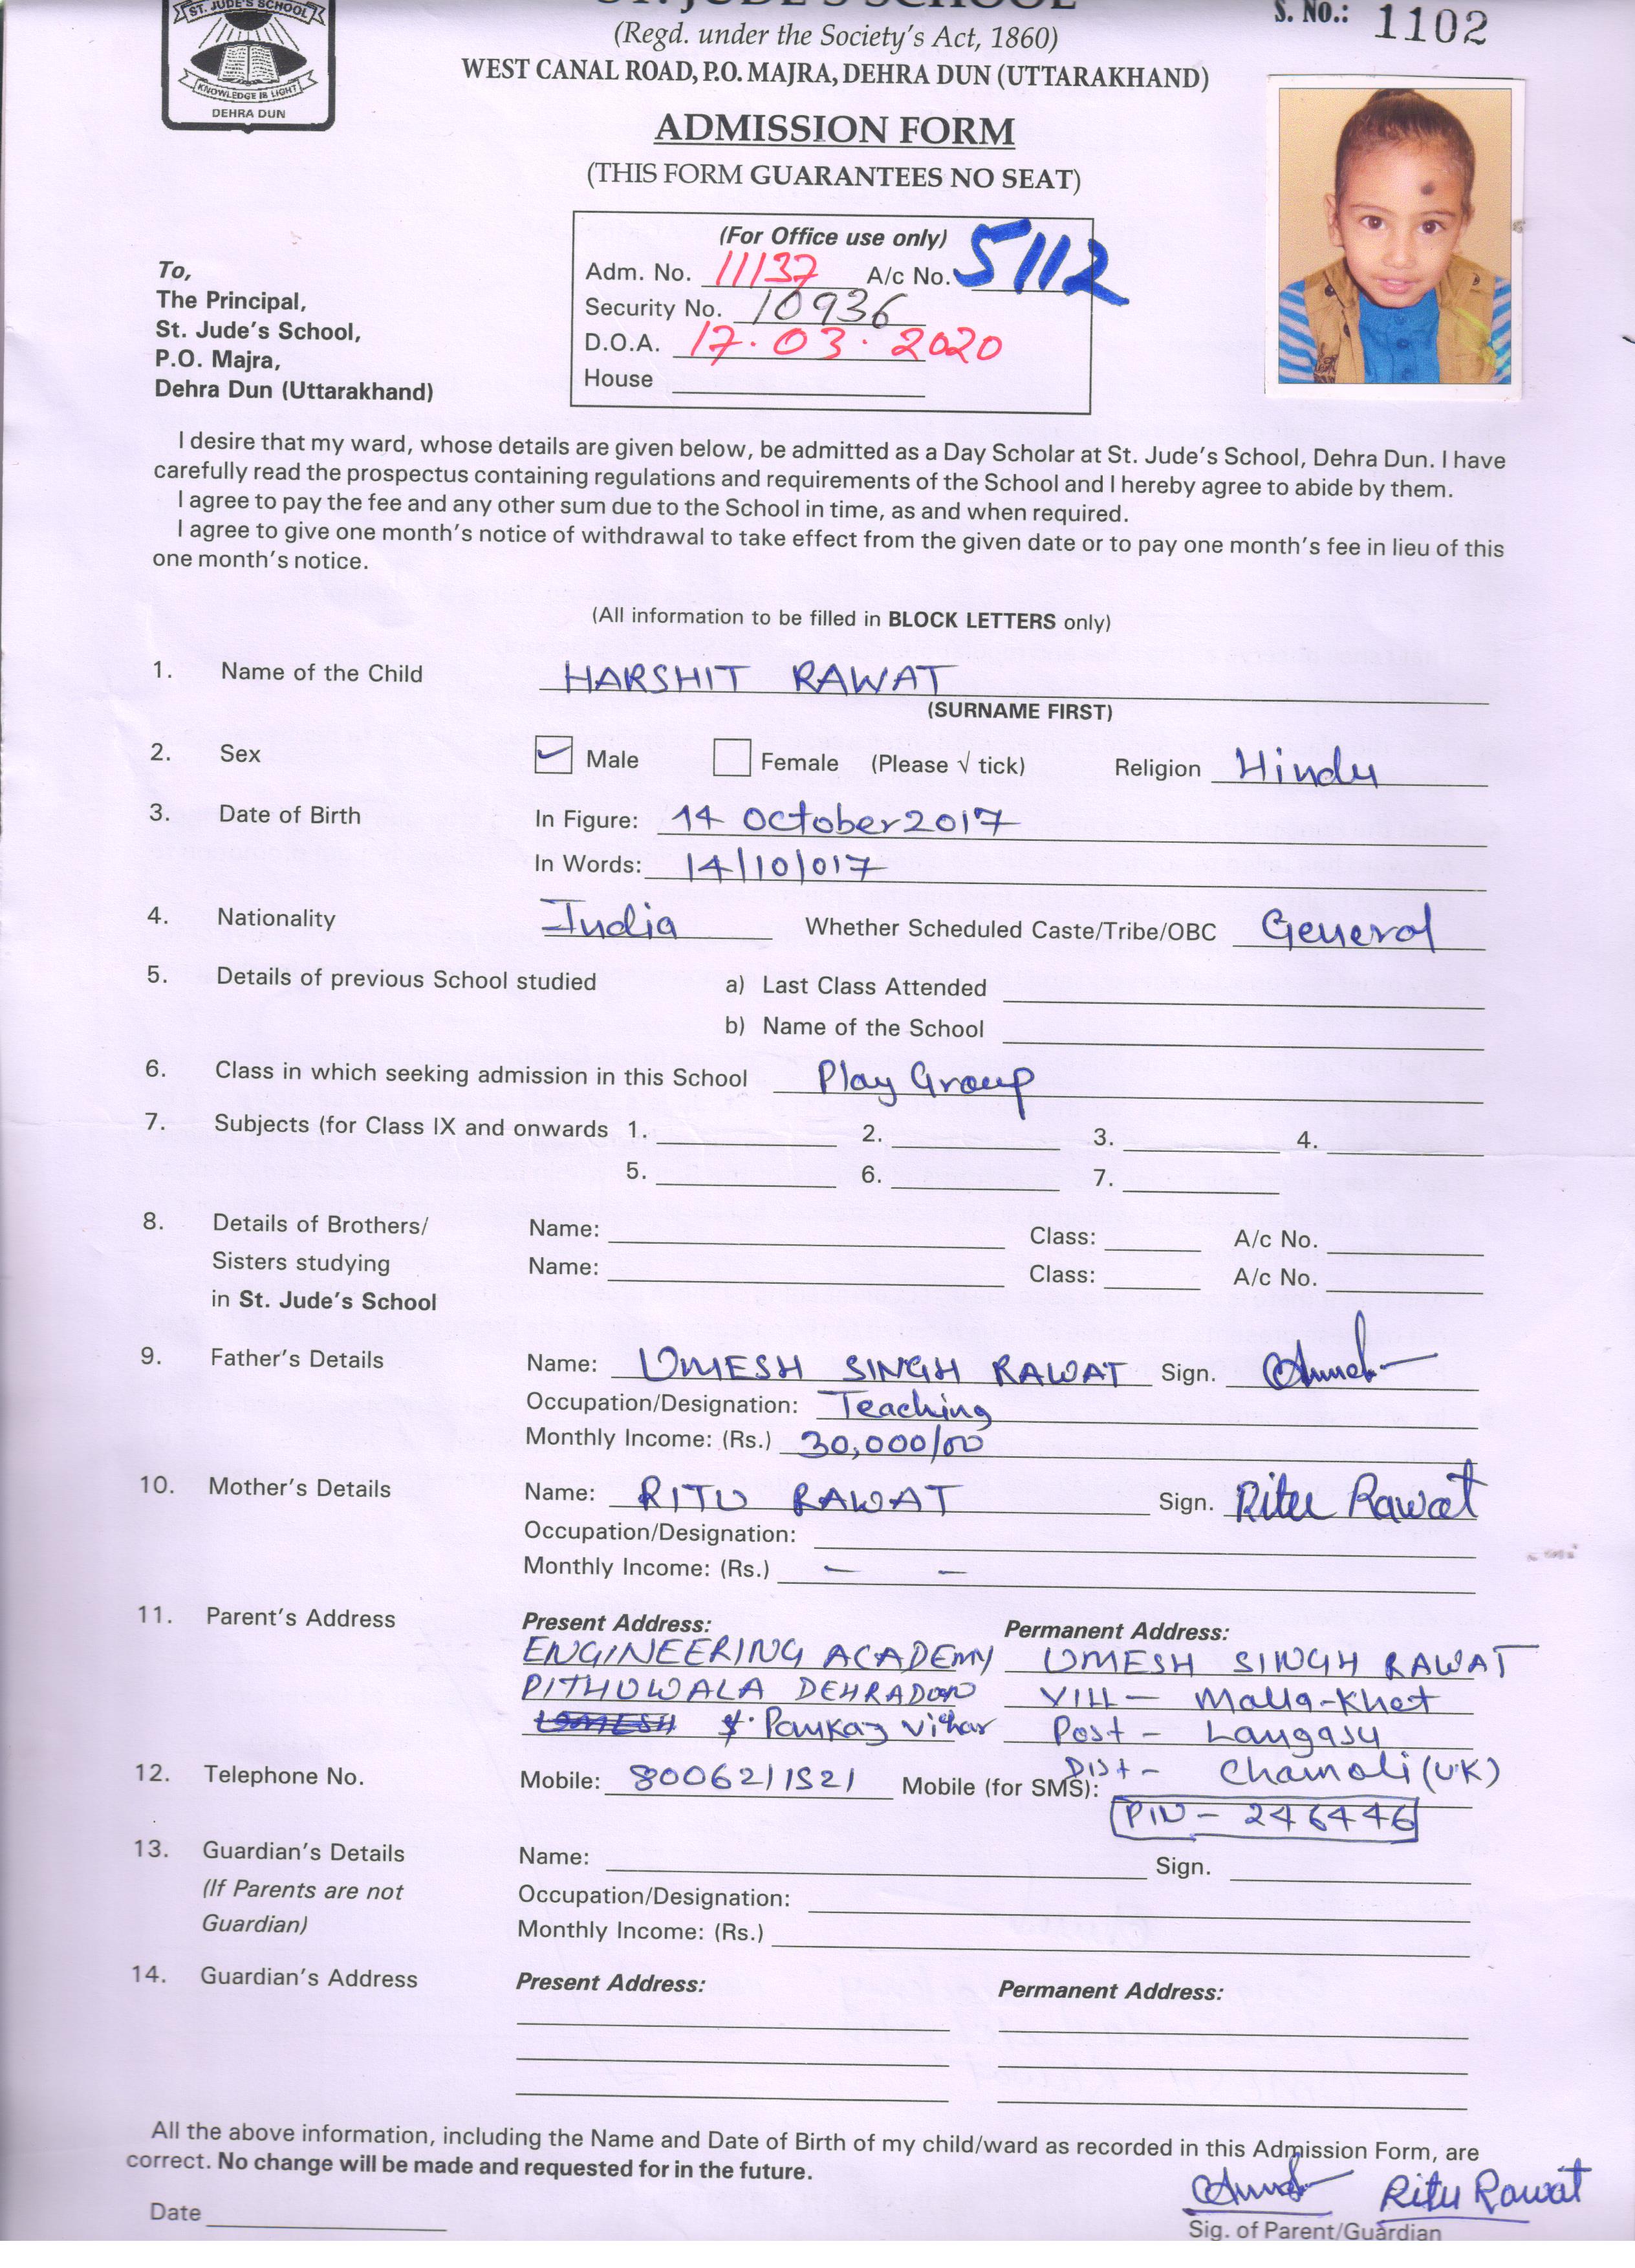 ST. JUDE'S SCHOOL
KNOWLEDGE IS LIGHT
DEHRA DUN
ST. JUDE'S SCHOOL
S. No.: 1102
(Regd. under the Society's Act, 1860)
WEST CANAL ROAD, P.O. MAJRA, DEHRA DUN (UTTARAKHAND)
ADMISSION FORM
(THIS FORM GUARANTEES NO SEAT)
(For Office use only)
Adm. No. 11137 A/c No. 5112
Security No. 10936
D.O.A. 17.03.2020
House
To,
The Principal,
St. Jude's School,
P.O. Majra,
Dehra Dun (Uttarakhand)
I desire that my ward, whose details are given below, be admitted as a Day Scholar at St. Jude's School, Dehra Dun. I have
carefully read the prospectus containing regulations and requirements of the School and I hereby agree to abide by them.
I agree to pay the fee and any other sum due to the School in time, as and when required.
I agree to give one month's notice of withdrawal to take effect from the given date or to pay one month's fee in lieu of this
one month's notice.
(All information to be filled in BLOCK LETTERS only)
1. Name of the Child HARSHIT RAWAT
(SURNAME FIRST)
2. Sex Male Female (Please √ tick) Religion Hindu
3. Date of Birth In Figure: 14 October 2017
In Words: 14/10/017
4. Nationality India Whether Scheduled Caste/Tribe/OBC General
5. Details of previous School studied a) Last Class Attended
b) Name of the School
6. Class in which seeking admission in this School Play Group
7. Subjects (for Class IX and onwards 1. 2. 3. 4.
5. 6. 7.
8. Details of Brothers/ Name: Class: A/c No.
Sisters studying Name: Class: A/c No.
in St. Jude's School
9. Father's Details Name: UMESH SINGH RAWAT Sign.
Occupation/Designation: Teaching
Monthly Income: (Rs.) 30,000/00
10. Mother's Details Name: RITU RAWAT Sign. Ritu Rawat
Occupation/Designation:
Monthly Income: (Rs.) — —
11. Parent's Address Present Address: Permanent Address:
ENGINEERING ACADEMY UMESH SINGH RAWAT
PITHUWALA DEHRADUN VILL — Malla-Khet
Pankaj Vihar Post - Langasu
Dist - Chamoli (U.K)
12. Telephone No. Mobile: 8006211521 Mobile (for SMS):
PIN - 246446
13. Guardian's Details Name: Sign.
(If Parents are not Occupation/Designation:
Guardian) Monthly Income: (Rs.)
14. Guardian's Address Present Address: Permanent Address:
All the above information, including the Name and Date of Birth of my child/ward as recorded in this Admission Form, are
correct. No change will be made and requested for in the future.
Ritu Rawat
Date
Sig. of Parent/Guardian